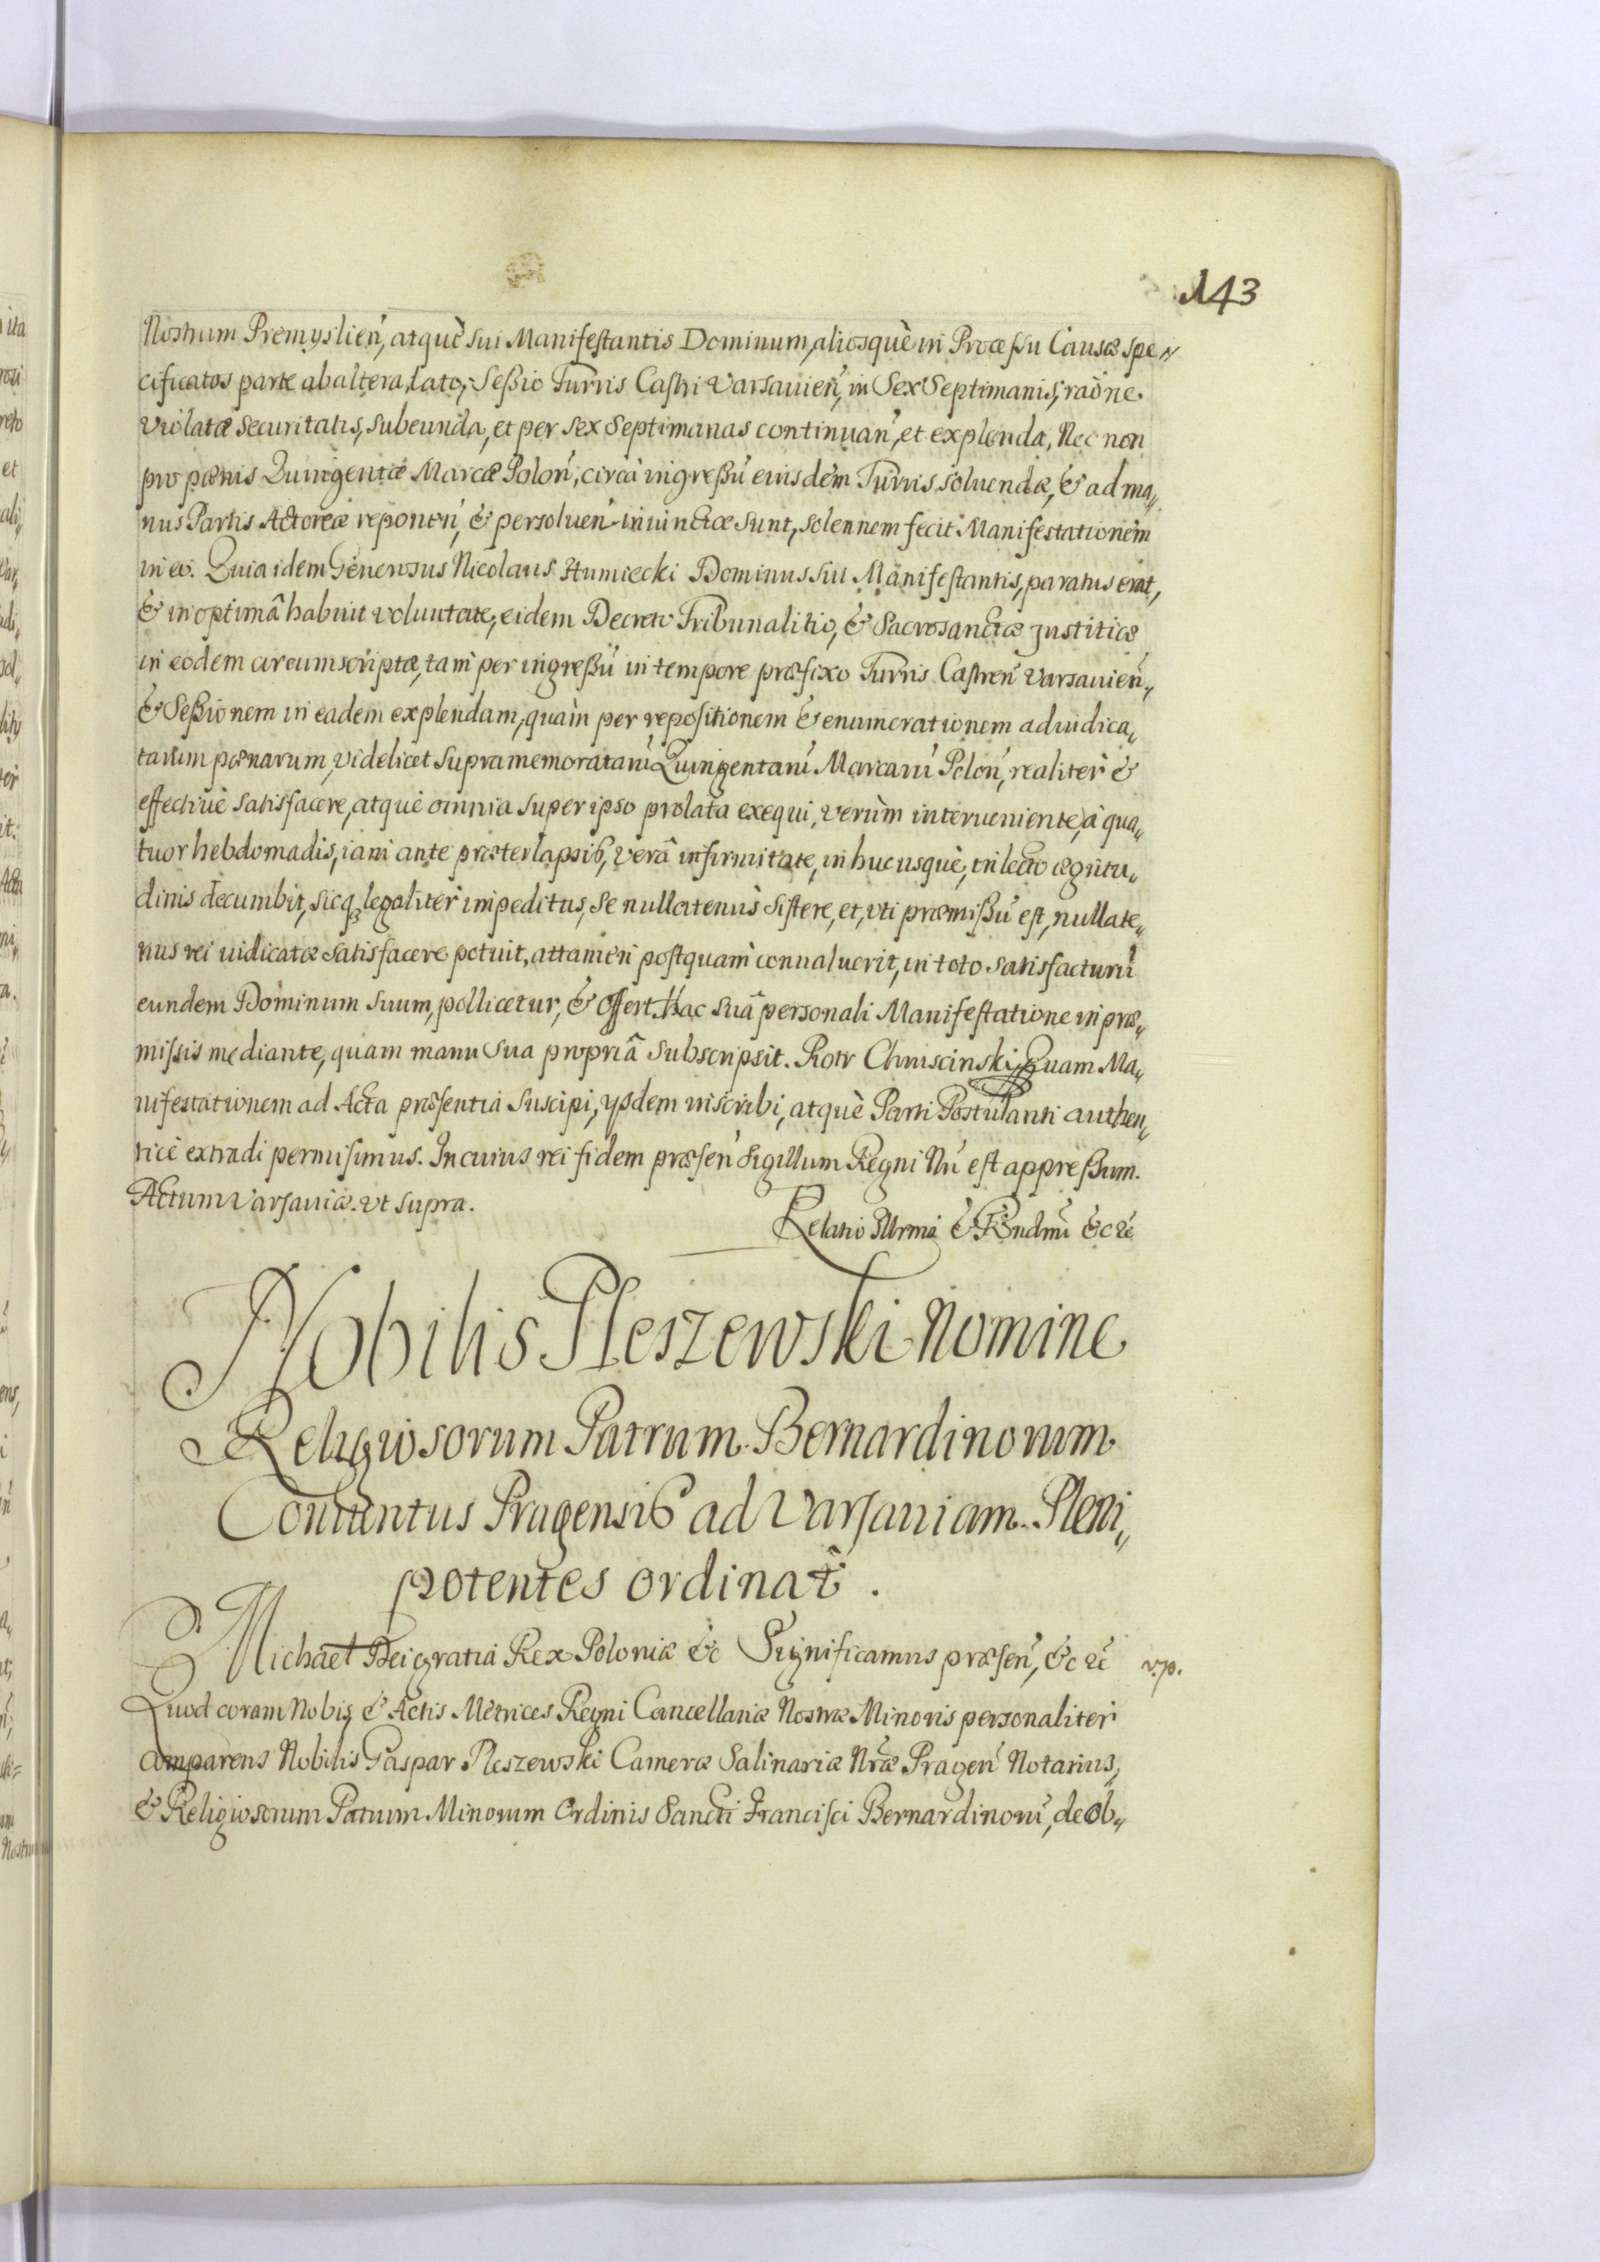 143
Nostrum Premyslien̄, atquè sui Manifestantis Dominum, aliosquè in Processu Causæ spe„
cificatos parte ab altera, lato, Sessio Turris Castri Varsavien̄, in Sex Septimanis, raōne
violatæ securitatis, subeunda, et per sex Septimanas continuan̄, et explenda, Nec non
pro pœnis Quingentæ Marcæ Polon̄, circa ingressū eiusdem Turris soluendæ, & ad ma„
nus Partis Actoreæ reponen̄, & persoluen̄ iniunctæ sunt, solennem fecit Manifestationem
in eo. Quia idem Generosus Nicolaus Humiecki Dominus sui Manifestantis, paratus erat,
& in optimâ habuit voluntate, eidem Decreto Tribunalitio, & Sacrosanctæ Justitiæ
in eodem circumscriptæ, tam per ingressū in tempore præfixo Turris Castren̄ Varsavien̄,
& Sessionem in eadem explendam, quàm per repositionem & enumerationem adiudica„
tarum pœnarum, videlicet supramemoratarū Quingentarū Marcarū Polon̄, realiter &
effectiuè satisfacere, atquè omnia super ipso prolata exequi, verùm interueniente, à qua„
tuor hebdomadis, iam ante præterlapsis, verâ infirmitate, in hucusquè, in lecto ægritu„
dinis decumbit, sicq; legaliter impeditus, se nullatenus sistere, et, vti præmissū est, nullate„
nus rei iudicatæ satisfacere potuit, attamen postquam conualuerit, in toto satisfacturū
eundem Dominum suum, pollicetur, & offert. Hac suâ personali Manifestatione in præ„
missis mediante, quam manu sua propriâ subscripsit. Piotr Chruscinski. Quam Ma„
nifestationem ad Acta præsentia suscipi, ysdem inscribi, atquè Parti Postulanti authen„
ticè extradi permisimus. In cuius rei fidem præsen̄ Sigillum Regni Nr̄i est appressum.
Actum Varsauiæ. vt supra.
Relatio Illrmi & Rn̄dmi &c &c
Nobilis Pleszewski Nomine
Religiosorum Patrum Bernardinorum
Conuentus Pragensis ad Varsauiam Pleni„
potentes ordinat̄.
Michael Dei gratia Rex Poloniæ &c Significamus præsen̄, &c &c
Quod coram Nobis, & Actis Metrices Regni Cancellariæ Nostræ Minoris personaliter
comparens Nobilis Gaspar Pleszewski Cameræ Salinariæ Nr̄æ Pragen̄ Notarius,
& Religiosorum Patrum Minorum Ordinis Sancti Francisci Bernardinorū, de Ob„